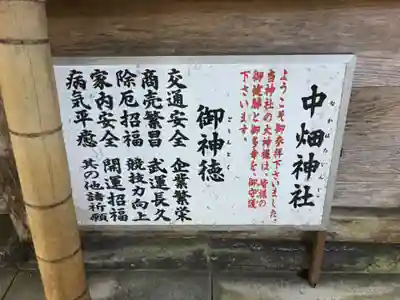 中畑神社
なかはたじんじゃ
ようこそ御参拝下さいました。
当神社の大神様は、皆様の
御健勝と御多幸を、御守護
下さいます。
御神徳
ごしんとく
交通安全　企業繁栄
商売繁昌　武運長久
除厄招福　競技力向上
家内安全　開運招福
病気平癒　其の他諸祈願